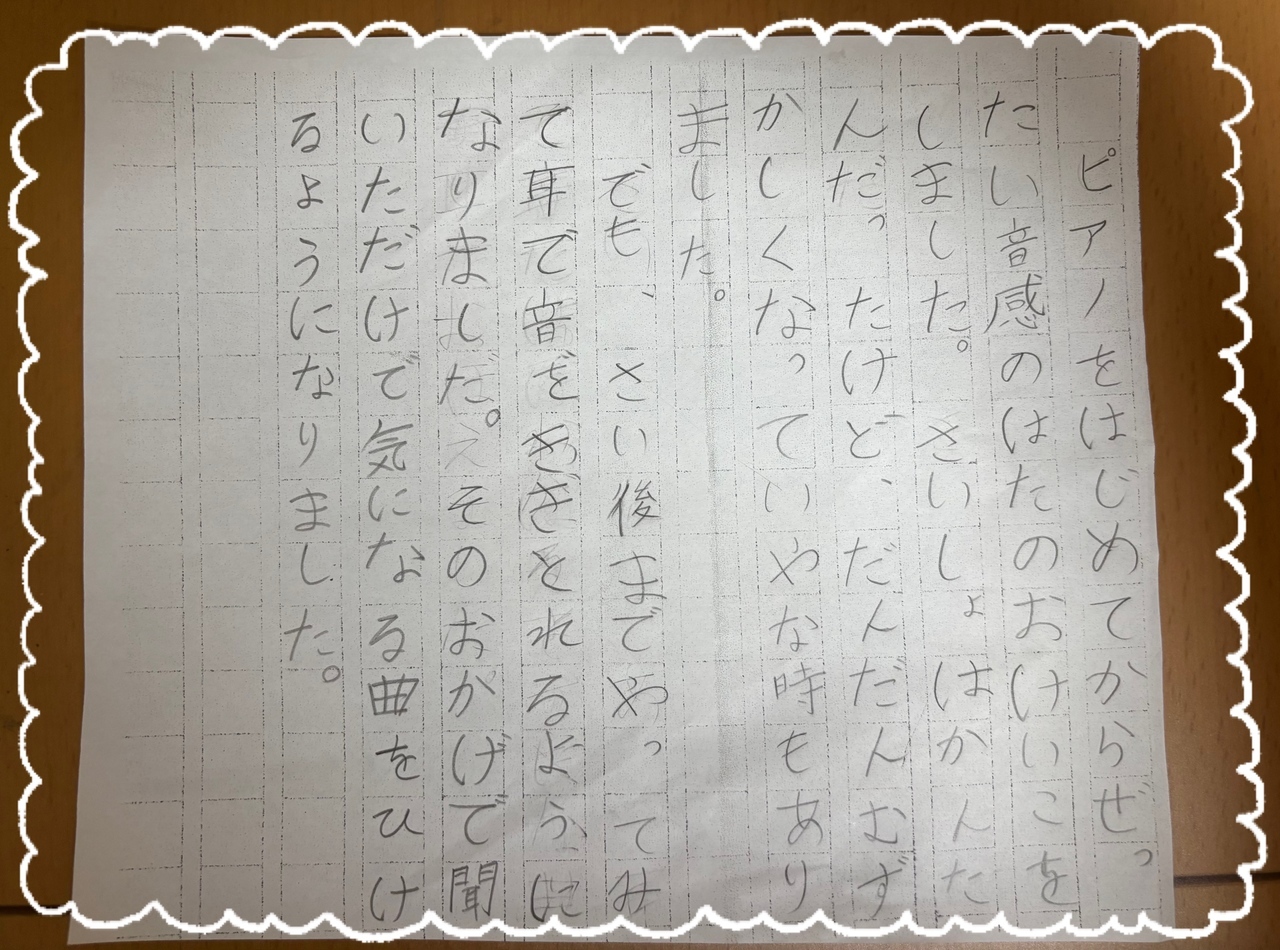 ピアノをはじめてからぜっ
たい音感のはたのおけいこを
しました。さいしょはかんた
んだったけど、だんだんむず
かしくなっていやな時もあり
ました。
でも、さい後までやってみ
て耳で音をききとれるように
なりました。そのおかげで聞
いただけで気になる曲をひけ
るようになりました。